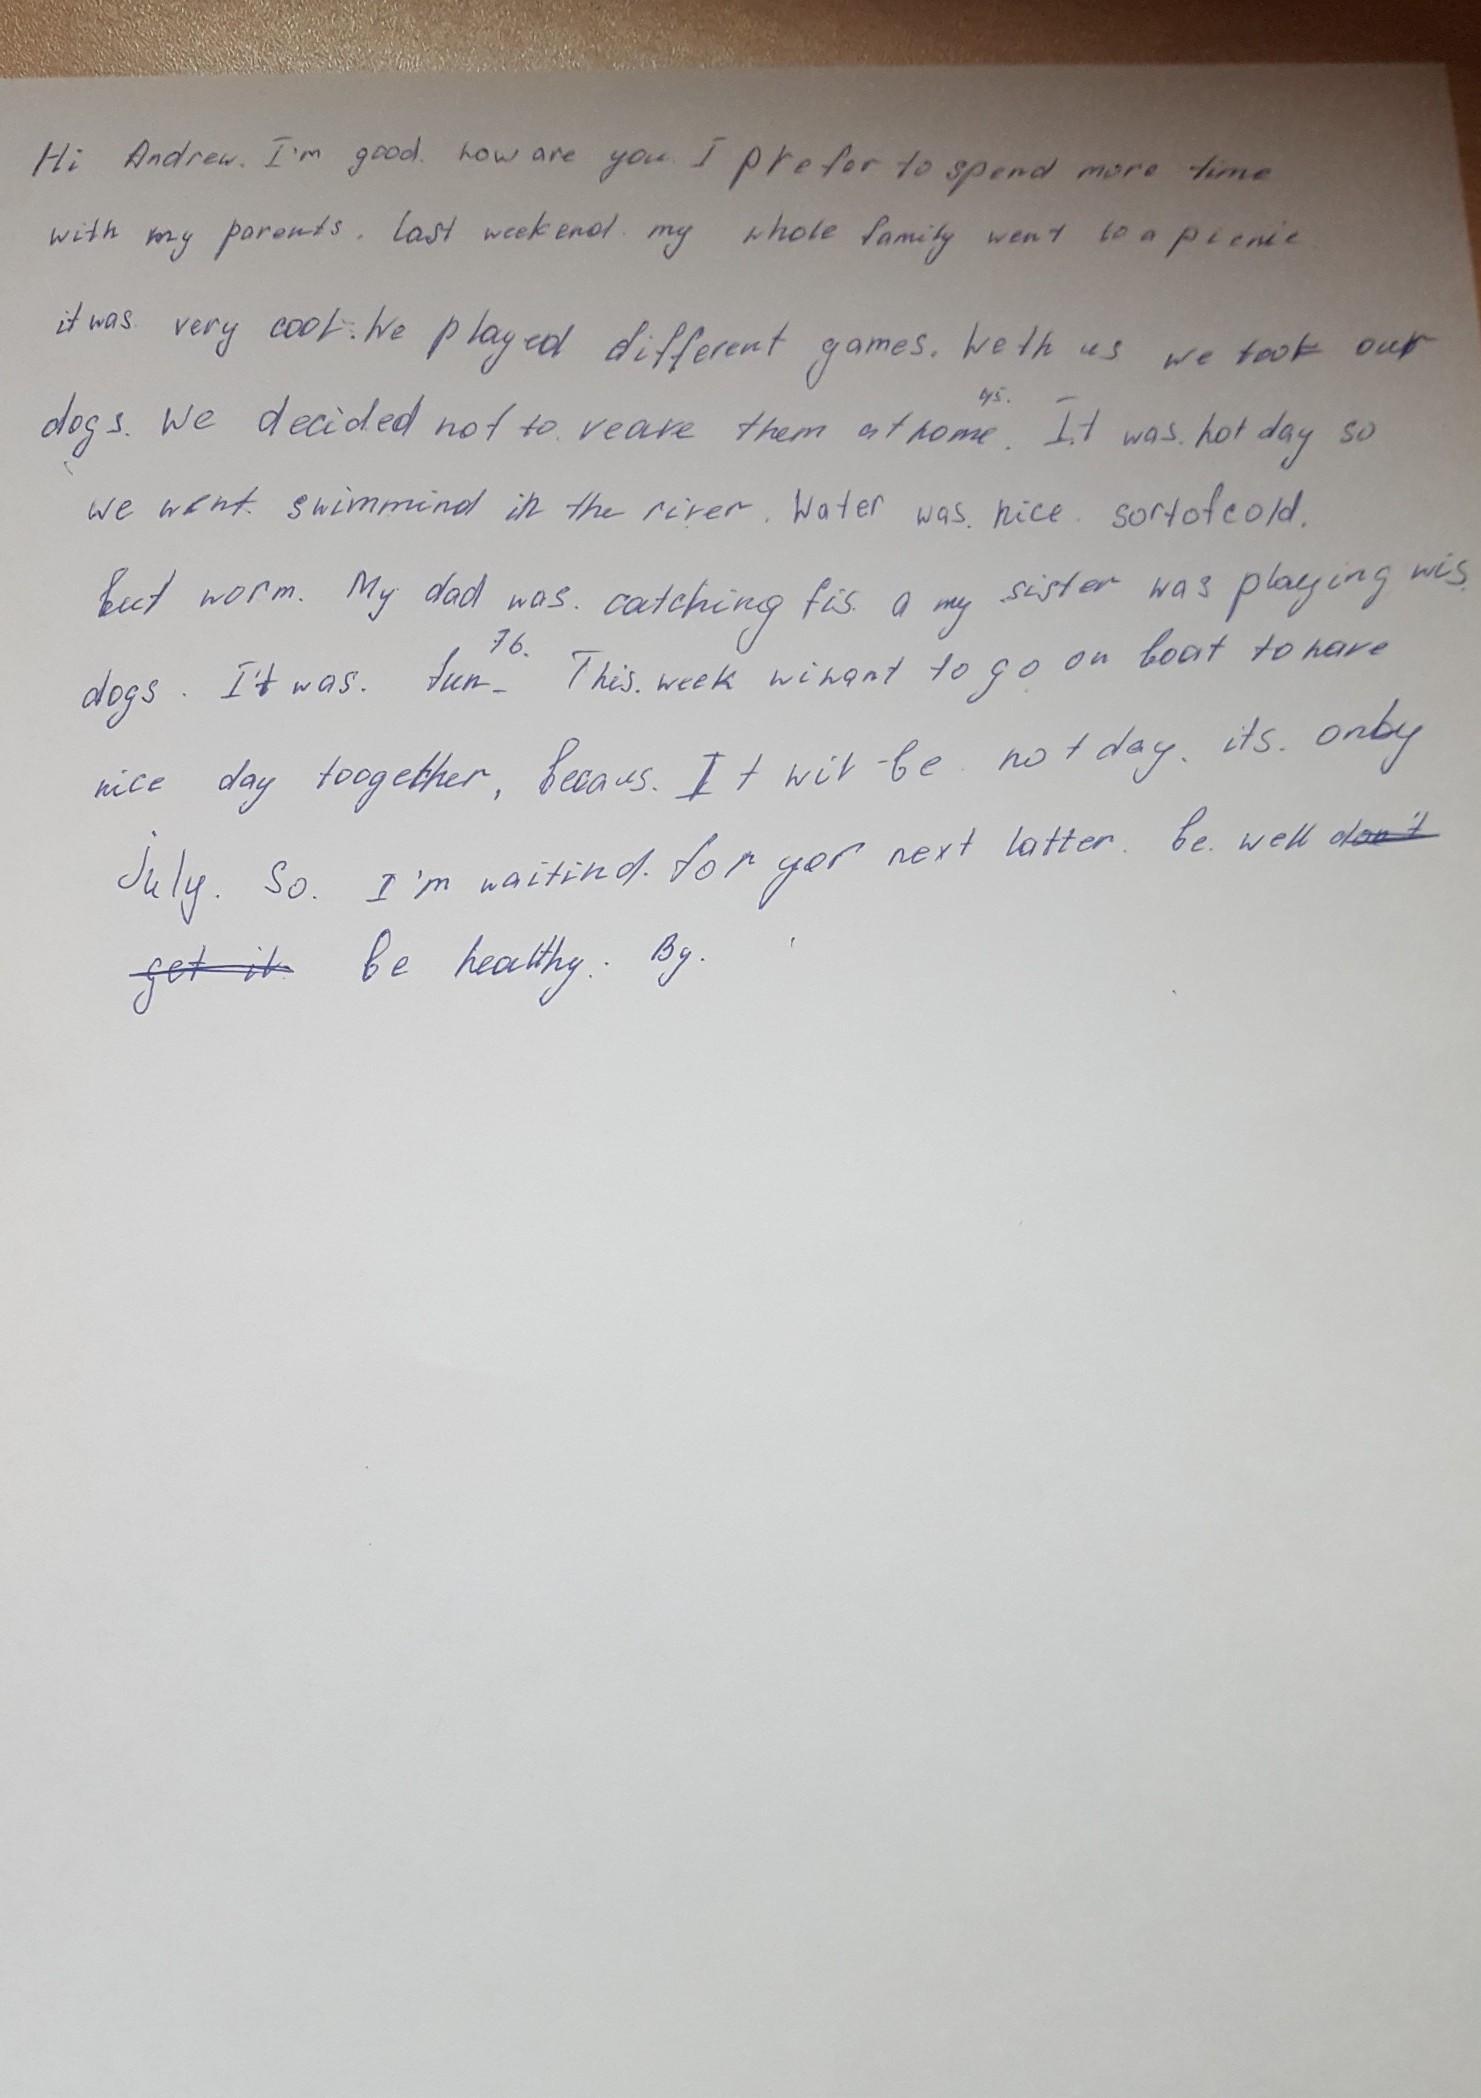 Hi Andrew. I'm good. how are you I prefer to spend more time
with my parents. last weekend. my whole family went to a picnic
it was very cool. We played different games. Weth us we took our
45.
dogs. We decided not to. veave them at home. It was. hot day so
we went. swimmind in the river. Water was. nice. sortofcold.
but worm. My dad was. catching fis. a my sister was playing wis.
76.
dogs. It was. fun_ This. week wiwant to go on boat to have
nice day toogether, becaus. It wil be hot day. its. onby
july. So. I'm waitind. for yor next latter. be. well don't
get it be healthy. By.